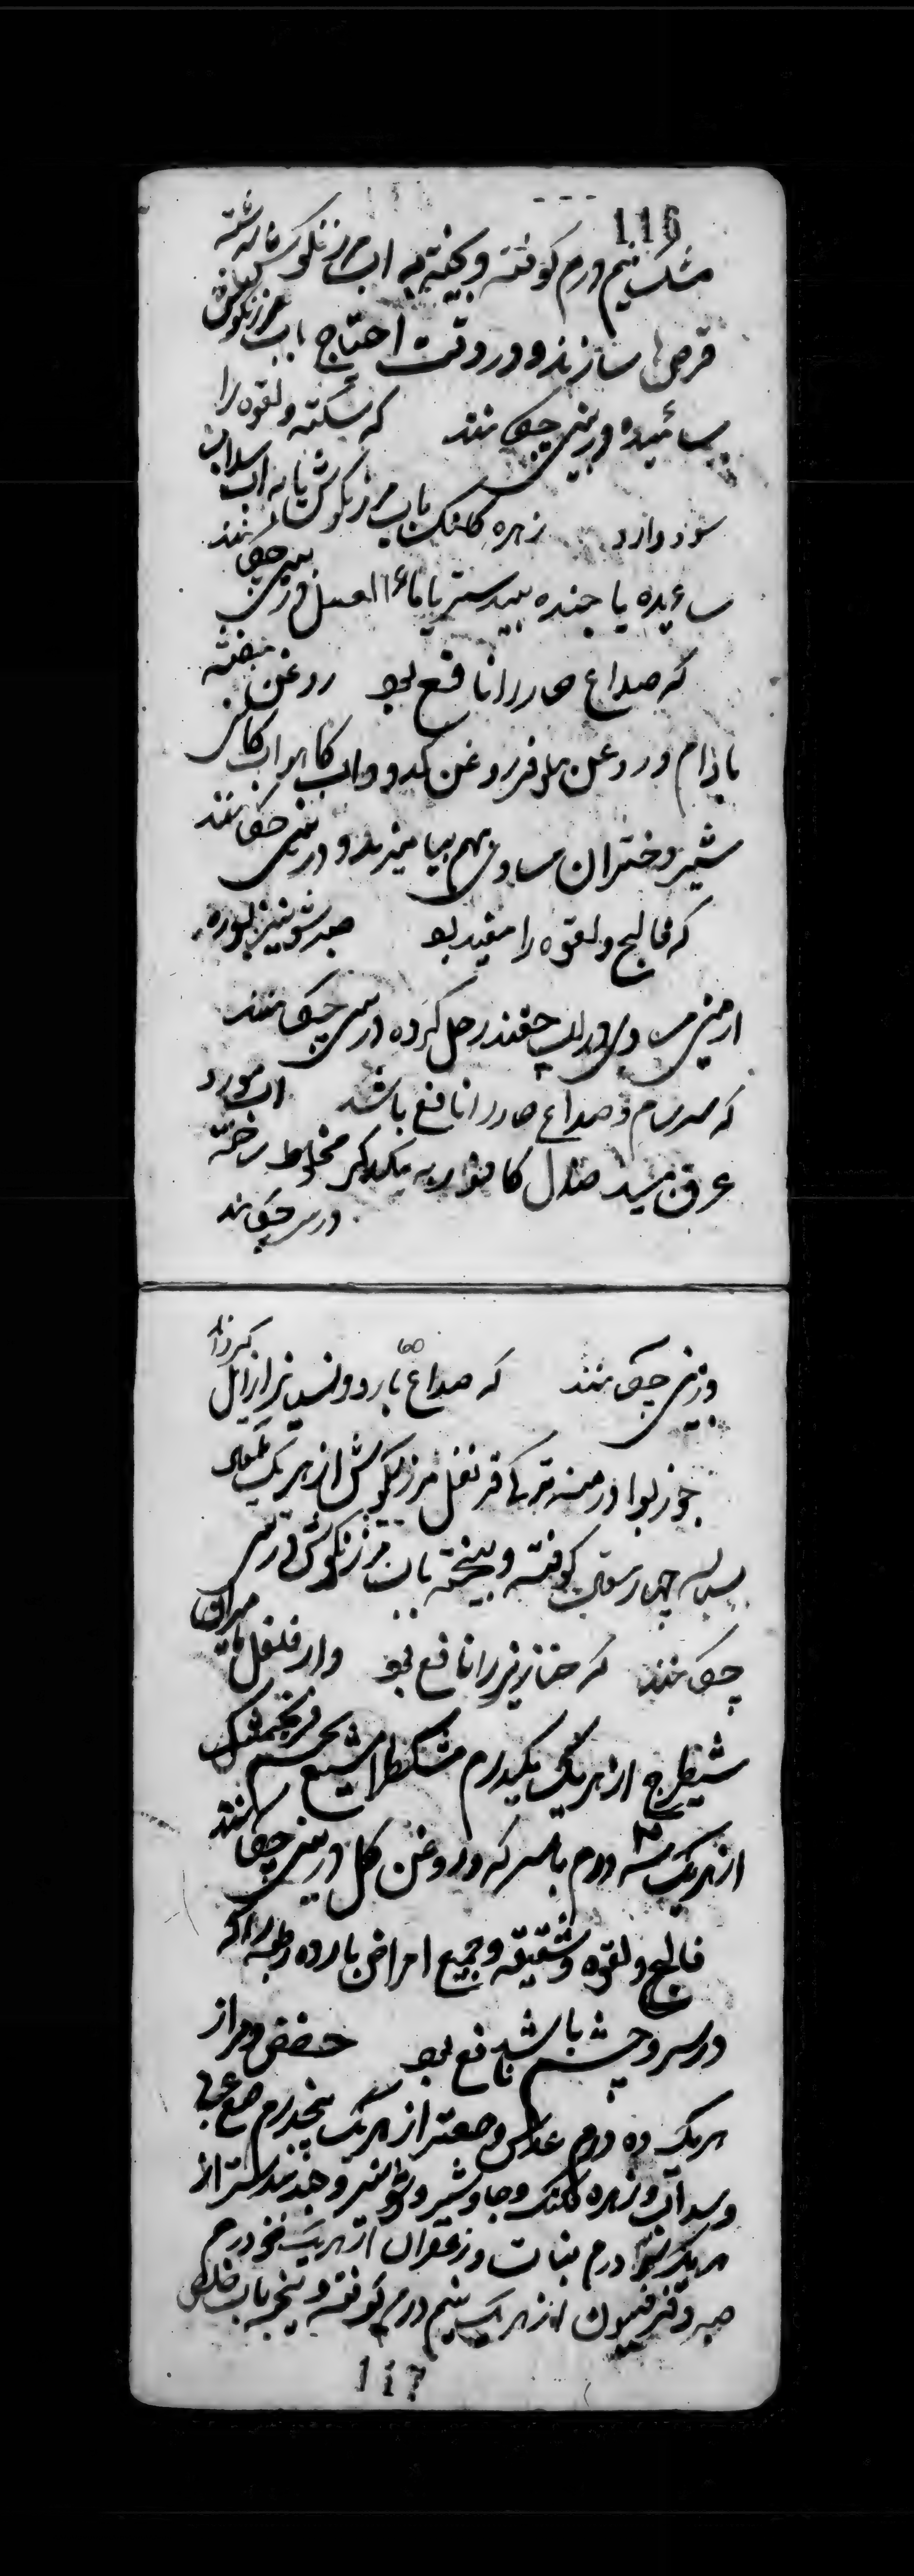 116
مشک نیم درم کوفته و بیخته به اب مرزنکوش سرشته
قرصها سازند و در وقت احتیاج باب مرزنکوش
سائیده در بینی چکانند که سکته و لقوه را
سود دارد زهره کلنک باب مرزنکوش یا به اب سداب
ساءیده یا جنده بیدستر یا ماء العسل در بینی چکانند
که صداع حار را نافع بود روغن بنفشه
بادام و روغن نیلوفر روغن کدو و اب کاهو اب
شیر دختران مساوی بهم بیامیزند و در بینی چکانند
که فالج و لقوه را مفید بود صبر شونیز بوره
ارمنی مساوی در اب چقندر حل کرده در بینی چکانند
که سرسام و صداع حار را نافع باشد اب مورد
عرق بید صندل کافور به یکدیکر مخلوط ساخته
در بینی چکانند
60
در بینی چکانند که صداع بارد و را زایل کرداند
جوز بوا درمنه ترکی قرنفل مرزنکوش از هر یک
کوفته و بیخته باب مرزنکوش در بینی
چکانند که خنازیر را نافع بود دار فلفل
شیطرج از هر یک یکدرم مشکطرامشیع تخم فرنجمشک
از هر یک سه درم با سرکه و روغن کل در بینی چکانند
فالج و لقوه و شقیقه و جمیع امراض بارده رطبه را که
در سر و چشم باشد نافع بود حضض و مر از
هر یک ده درم عدس و صعتر از هر یک پنجدرم صمغ عربی
و سداب و زهره کلنک و جاوشیر و شونیز و جندبیدستر از
هر یک درم نبات و زعفران از هر یک درم
صبر و فرفیون از هر یک نیم درم کوفته و بیخته باب
117